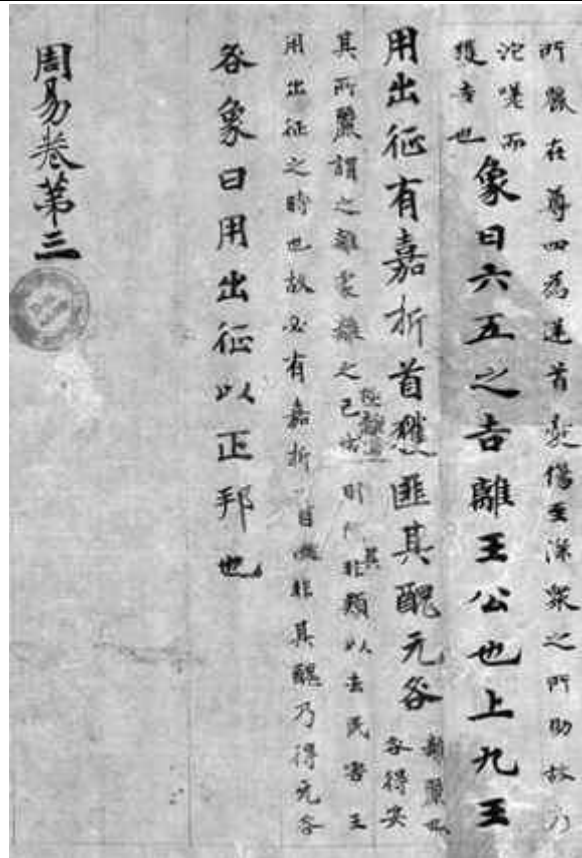 所麗在尊四為逆首憂傷至深眾之所助故乃
沱嗟而
獲吉也
象曰六五之吉離王公也上九王
用出征有嘉折首獲匪其醜无咎
離麗也
各得安
其所麗謂之離處離之極離道已成則除其非類以去民害王
用出征之時也故必有嘉折首獲非其醜乃得无咎
咎象曰用出征以正邦也
周易卷第三